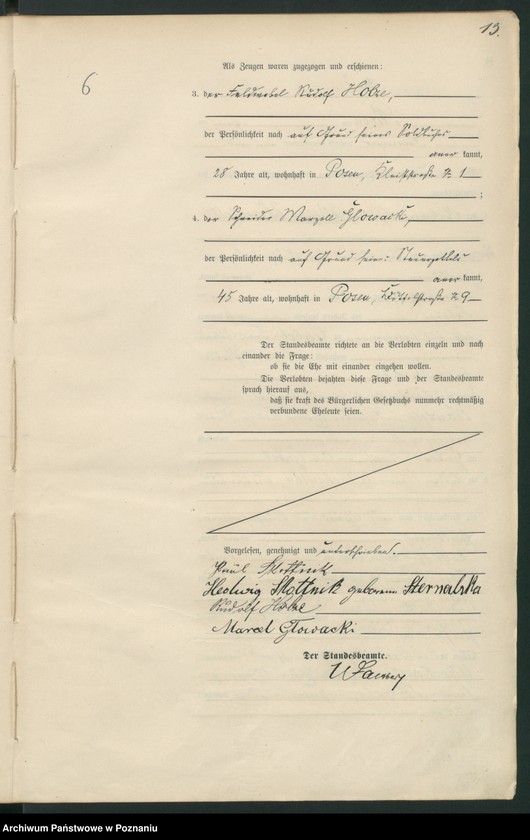 13.
6
Als Zeugen waren zugezogen und erschienen:
3. der Feldwebel Rudolf Holze,
der Persönlichkeit nach auf Grund seines Soldbuches
aner kannt,
28 Jahre alt, wohnhaft in Posen, Kleiststraße 1
;
4. der Schneider Marzell Glowacki,
der Persönlichkeit nach auf Grund seines Steuerzettels
aner kannt,
45 Jahre alt, wohnhaft in Posen, 29
Der Standesbeamte richtete an die Verlobten einzeln und nach
einander die Frage:
ob sie die Ehe mit einander eingehen wollen.
Die Verlobten bejahten diese Frage und der Standesbeamte
sprach hierauf aus,
daß sie kraft des Bürgerlichen Gesetzbuchs nunmehr rechtmäßig
verbundene Eheleute seien.
Vorgelesen, genehmigt und unterschrieben.
Paul Skottnik
Hedwig Skottnik geborene Sternalska
Rudolf Holze
Marcel Głowacki
Der Standesbeamte.
Archiwum Państwowe w Poznaniu